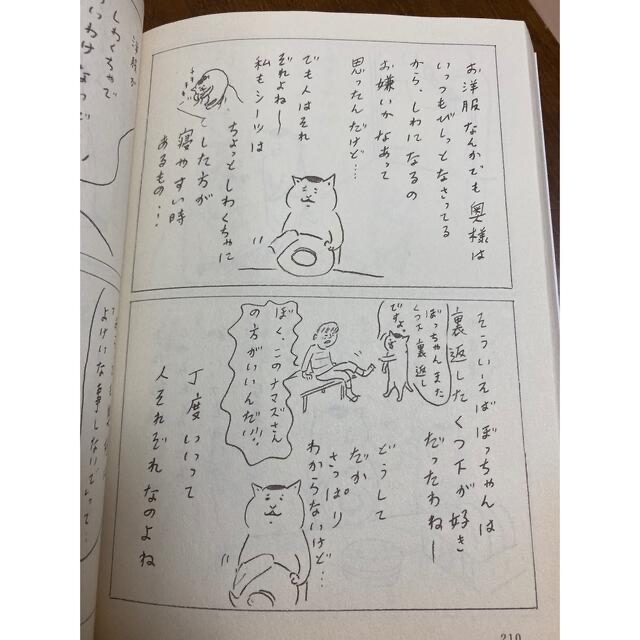 お洋服なんかでも奥様は
いっつもぴしっとなさってる
から、しわになるの
お嫌いかなあって
思ったんだけど…
でも人はそれ
ぞれよね〜
私もシーツは
ちょっとしわくちゃに
した方が
寝やすい時
あるもの…
そういえばぼっちゃんは
裏返したくつ下が好き
だったわねー
ぼっちゃんまた
くつ下裏返し
ですよ。
ぼく、このナマズさん
の方がいいんだい!!
どうして
だか
さっぱり
わからないけど…
丁度いいって
人それぞれなのよね
洋服が
しわくちゃで
いいわけないって
よけいな事しないでって…
210